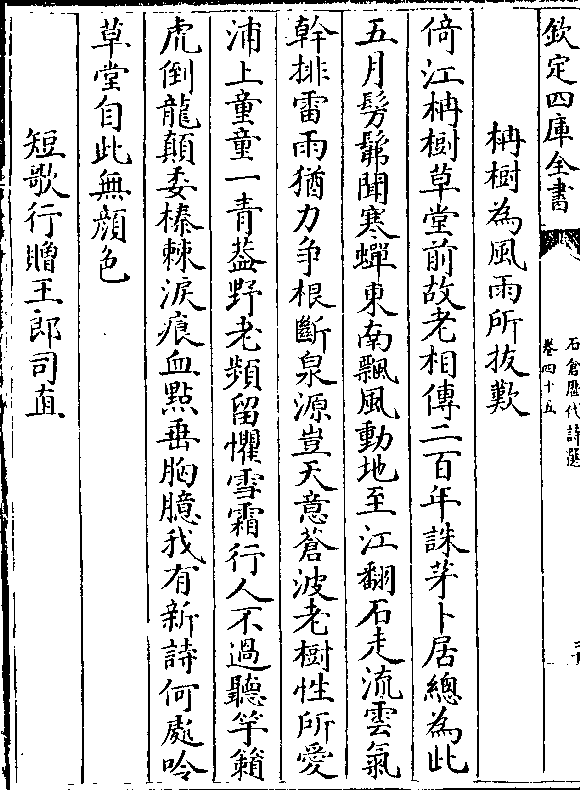 欽定四庫全書
石倉歷代詩選
卷四十五
枏樹為風雨所拔歎
倚江枏樹草堂前故老相傳二百年誅茅卜居總為此
五月髣髴聞寒蟬東南飄風動地至江翻石走流雲氣
幹排雷雨猶力争根斷泉源豈天意蒼波老樹性所愛
浦上童童一青蓋野老頻留懼雪霜行人不過聽竽籟
虎倒龍顛委榛棘淚痕血點垂胸臆我有新詩何處吟
草堂自此無顔色
短歌行贈王郎司直